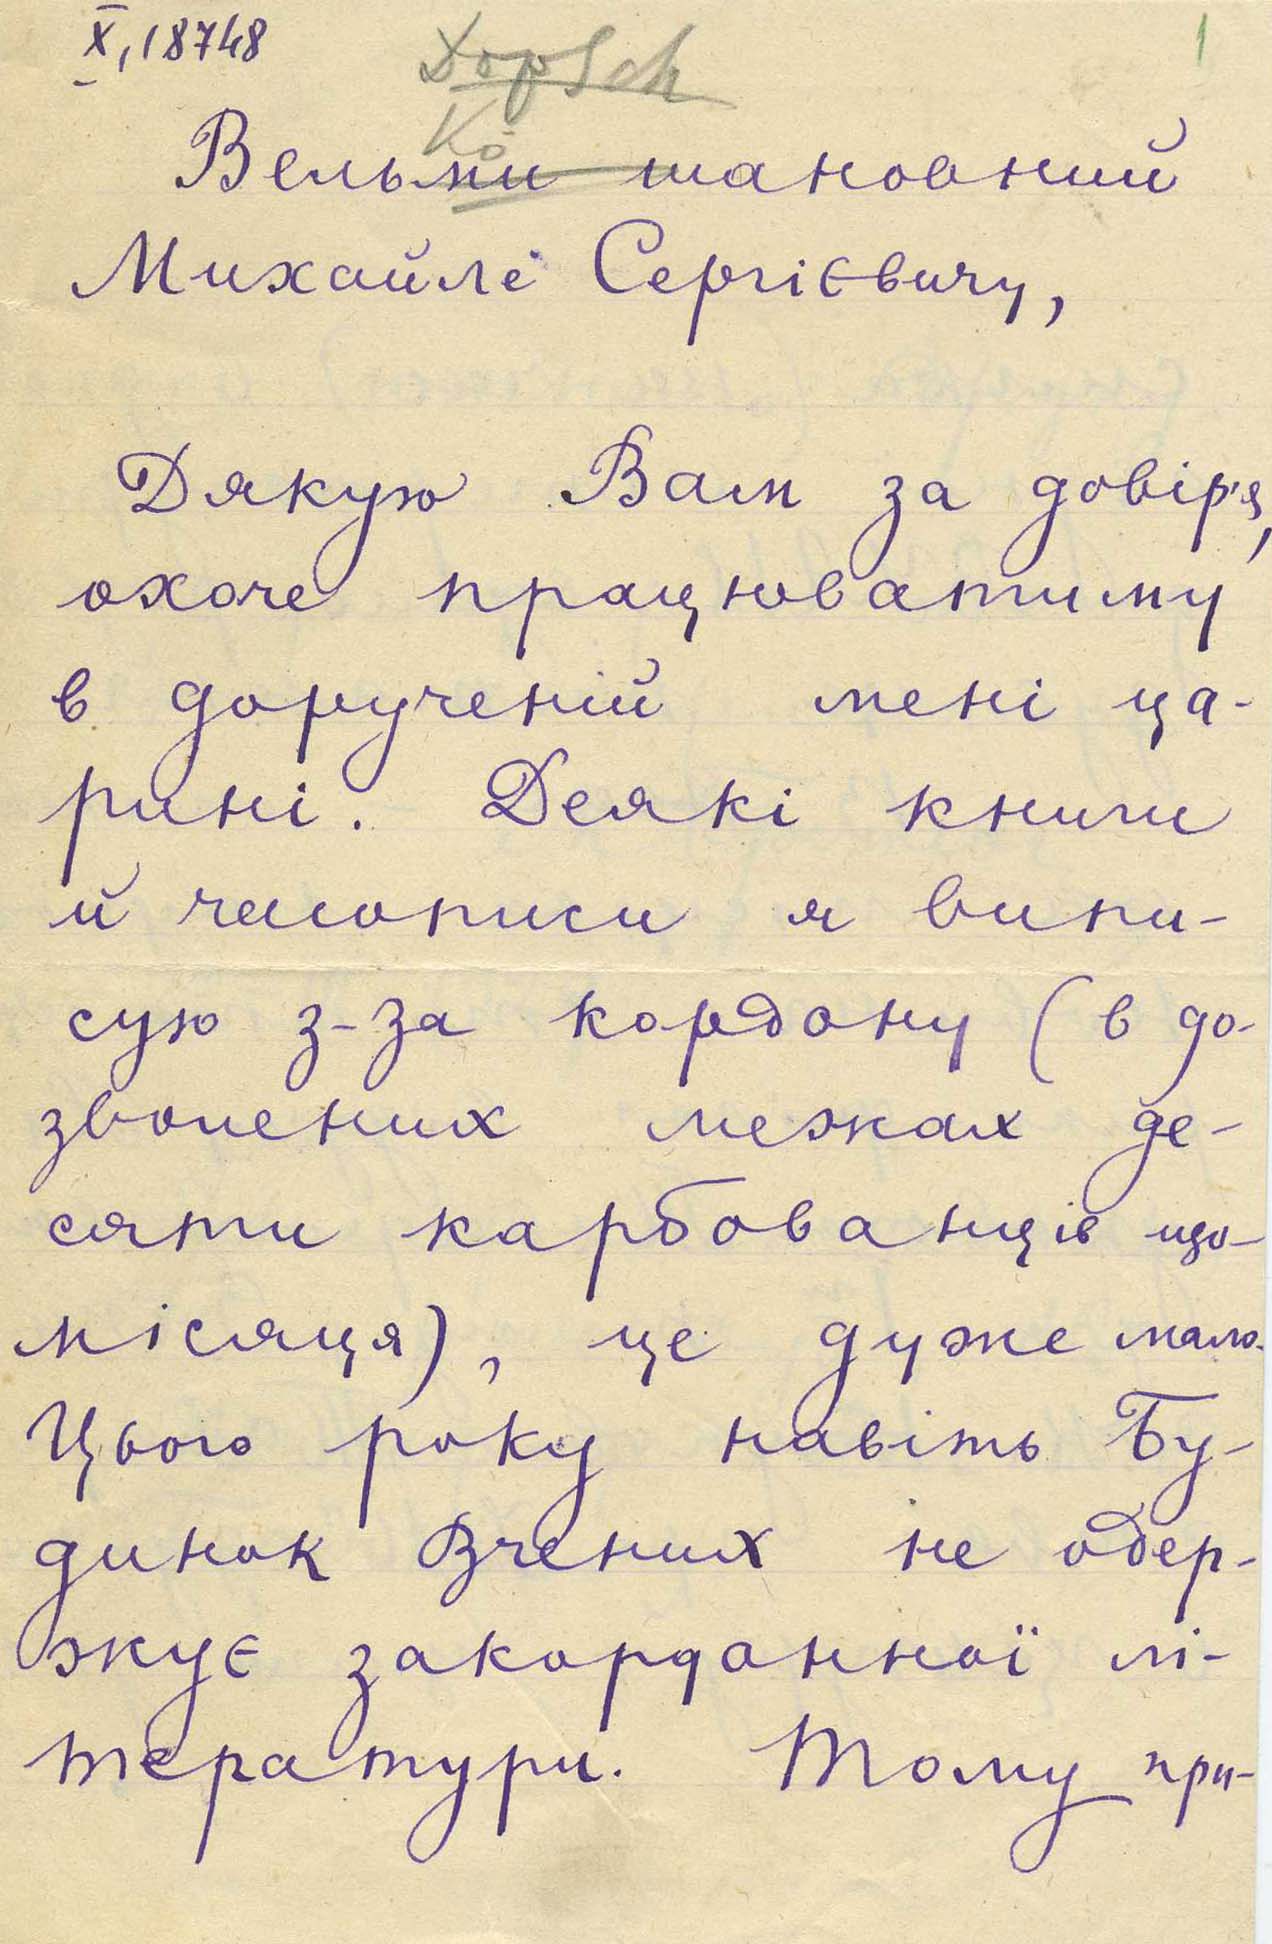 X, 18748
Dopsch
1
Вельми шановний
Михайле Сергієвичу,
Дякую Вам за довір'я,
охоче працюватиму
в дорученій мені ца-
рині. Деякі книги
й часописи я випи-
сую з-за кордону (в до-
зволених межах де-
сяти карбованців що-
місяця), це дуже мало.
Цього року навіть Бу-
динок Вчених не одер-
жує закордонної лі-
тератури. Тому при-